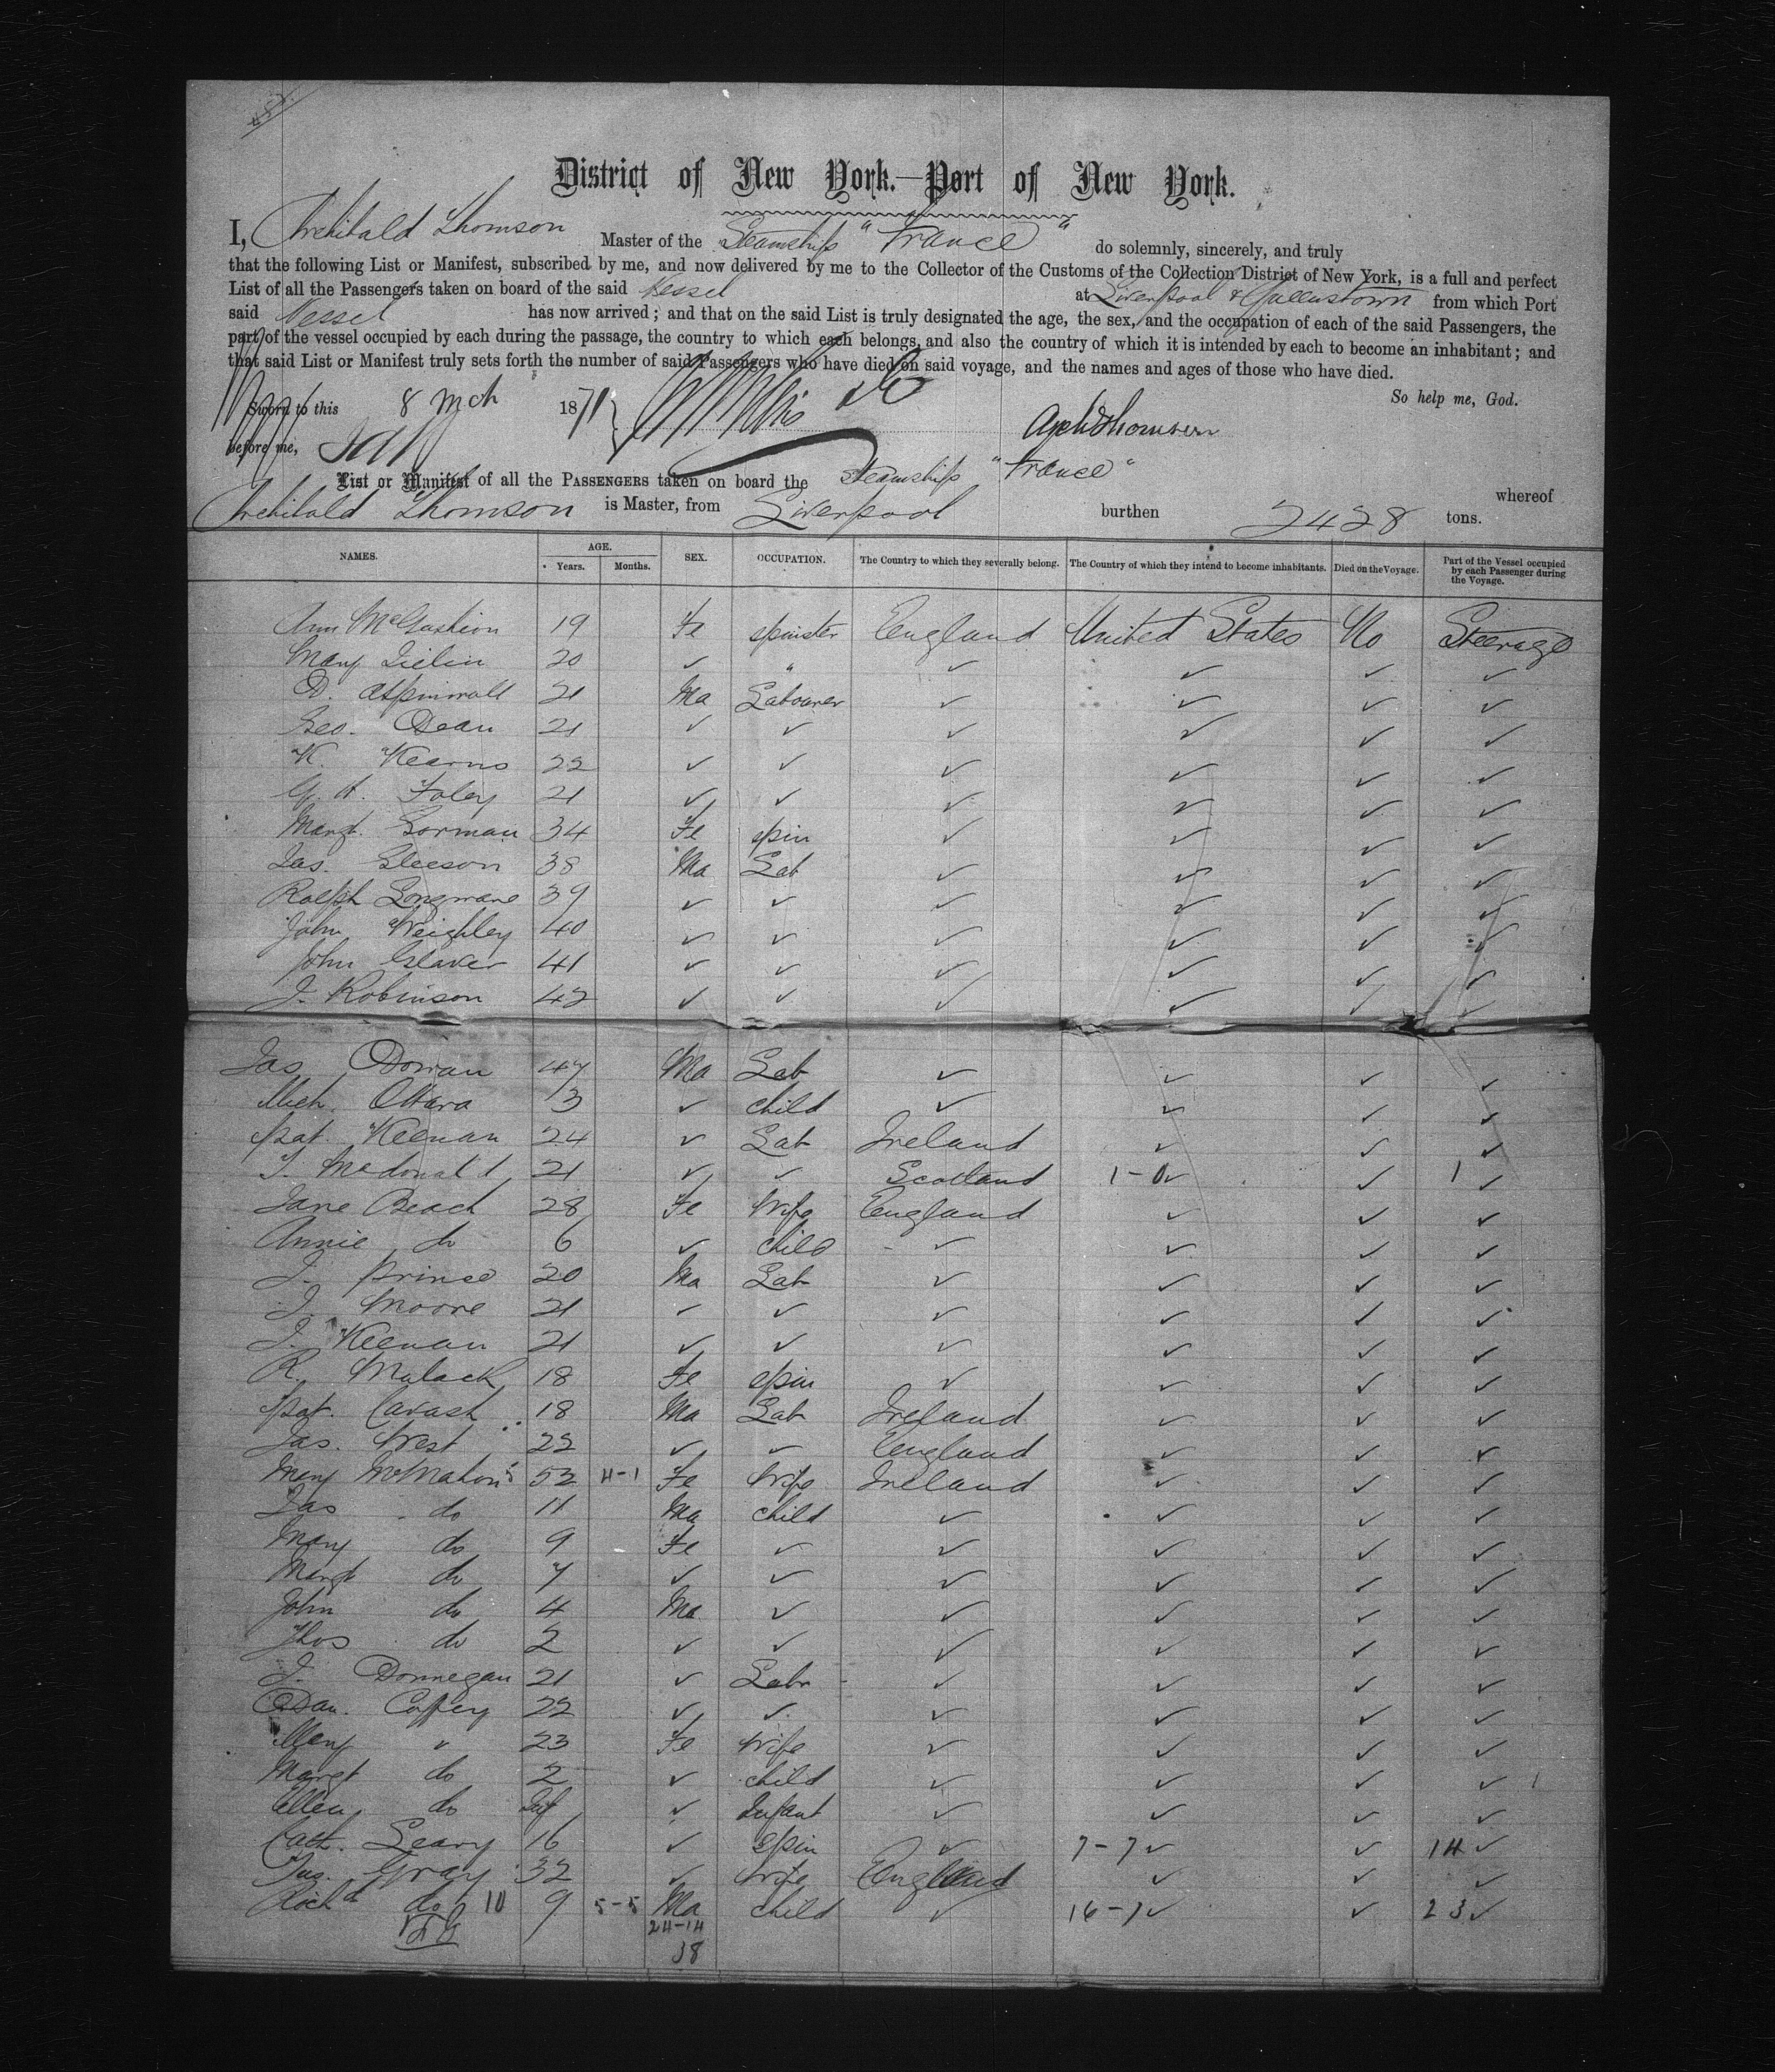 District of New York.—Port of New York.
I, Archibald Thomson Master of the Steamship "France" do solemnly, sincerely, and truly
that the following List or Manifest, subscribed by me, and now delivered by me to the Collector of the Customs of the Collection District of New York, is a full and perfect
List of all the Passengers taken on board of the said Vessel at Liverpool & Queenstown from which Port
said Vessel has now arrived; and that on the said List is truly designated the age, the sex, and the occupation of each of the said Passengers, the
part of the vessel occupied by each during the passage, the country to which each belongs, and also the country of which it is intended by each to become an inhabitant; and
that said List or Manifest truly sets forth the number of said Passengers who have died on said voyage, and the names and ages of those who have died.
So help me, God.
Sworn to this 8 Mch 1871
Archd Thomson
before me,
List or Manifest of all the PASSENGERS taken on board the Steamship "France" whereof
Archibald Thomson is Master, from Liverpool burthen 2428 tons.
NAMES. AGE. Years. Months. SEX. OCCUPATION. The Country to which they severally belong. The Country of which they intend to become inhabitants. Died on the Voyage. Part of the Vessel occupied by each Passenger during the Voyage.
Ann 19 Fe spinster England United States No Steerage
Mary 20 ✓ " ✓ ✓ ✓ ✓
D. Aspinwall 21 Ma Labourer ✓ ✓ ✓ ✓
Geo. Dean 21 ✓ ✓ ✓ ✓ ✓ ✓
K. Kearns 22 ✓ ✓ ✓ ✓ ✓ ✓
G. H. Foley 21 ✓ ✓ ✓ ✓ ✓ ✓
Margt. Gorman 34 Fe spin ✓ ✓ ✓ ✓
Jas. Gleeson 38 Ma Lab ✓ ✓ ✓ ✓
Ralph 39 ✓ ✓ ✓ ✓ ✓ ✓
John Weighley 40 ✓ ✓ ✓ ✓ ✓ ✓
John Glaver 41 ✓ ✓ ✓ ✓ ✓ ✓
J. Robinson 42 ✓ ✓ ✓ ✓ ✓ ✓
Jas Dowan 47 Ma Lab ✓ ✓ ✓ ✓
Mich. OHara 3 ✓ child ✓ ✓ ✓ ✓
Pat. Keenan 24 ✓ Lab Ireland ✓ ✓ ✓
T. McDonald 21 ✓ ✓ Scotland 1-0 ✓ ✓ 1 ✓
Jane Beach 28 Fe Wife England ✓ ✓ ✓
Annie do 6 ✓ child ✓ ✓ ✓ ✓
J. Prince 20 Ma Lab ✓ ✓ ✓ ✓
J. Moore 21 ✓ ✓ ✓ ✓ ✓ ✓
J. Keenan 21 ✓ ✓ ✓ ✓ ✓ ✓
R. Mulack 18 Fe spin ✓ ✓ ✓ ✓
Pat. Cavash 18 Ma Lab Ireland ✓ ✓ ✓
Jas. West 22 ✓ ✓ England ✓ ✓ ✓
Mary McMahon 52 4-1 Fe Wife Ireland ✓ ✓ ✓
Jas do 11 Ma child ✓ ✓ ✓ ✓
Mary do 9 Fe ✓ ✓ ✓ ✓ ✓
Margt do 7 ✓ ✓ ✓ ✓ ✓ ✓
John do 4 Ma ✓ ✓ ✓ ✓ ✓
Thos do 2 ✓ ✓ ✓ ✓ ✓ ✓
J. Donnegan 21 ✓ Labr ✓ ✓ ✓ ✓
Dan. Coffey 22 ✓ ✓ ✓ ✓ ✓ ✓
Mary " 23 Fe Wife ✓ ✓ ✓ ✓
Margt do 2 ✓ child ✓ ✓ ✓ ✓
Ellen do Inf ✓ Infant ✓ ✓ ✓ ✓
Cath. Leary 16 ✓ Spin ✓ 7-7 ✓ ✓ 14 ✓
Gray 32 ✓ Wife England ✓ ✓ ✓
Richd do 10 9 5-5 Ma child ✓ 16-7 ✓ ✓ 23 ✓
24-14
38